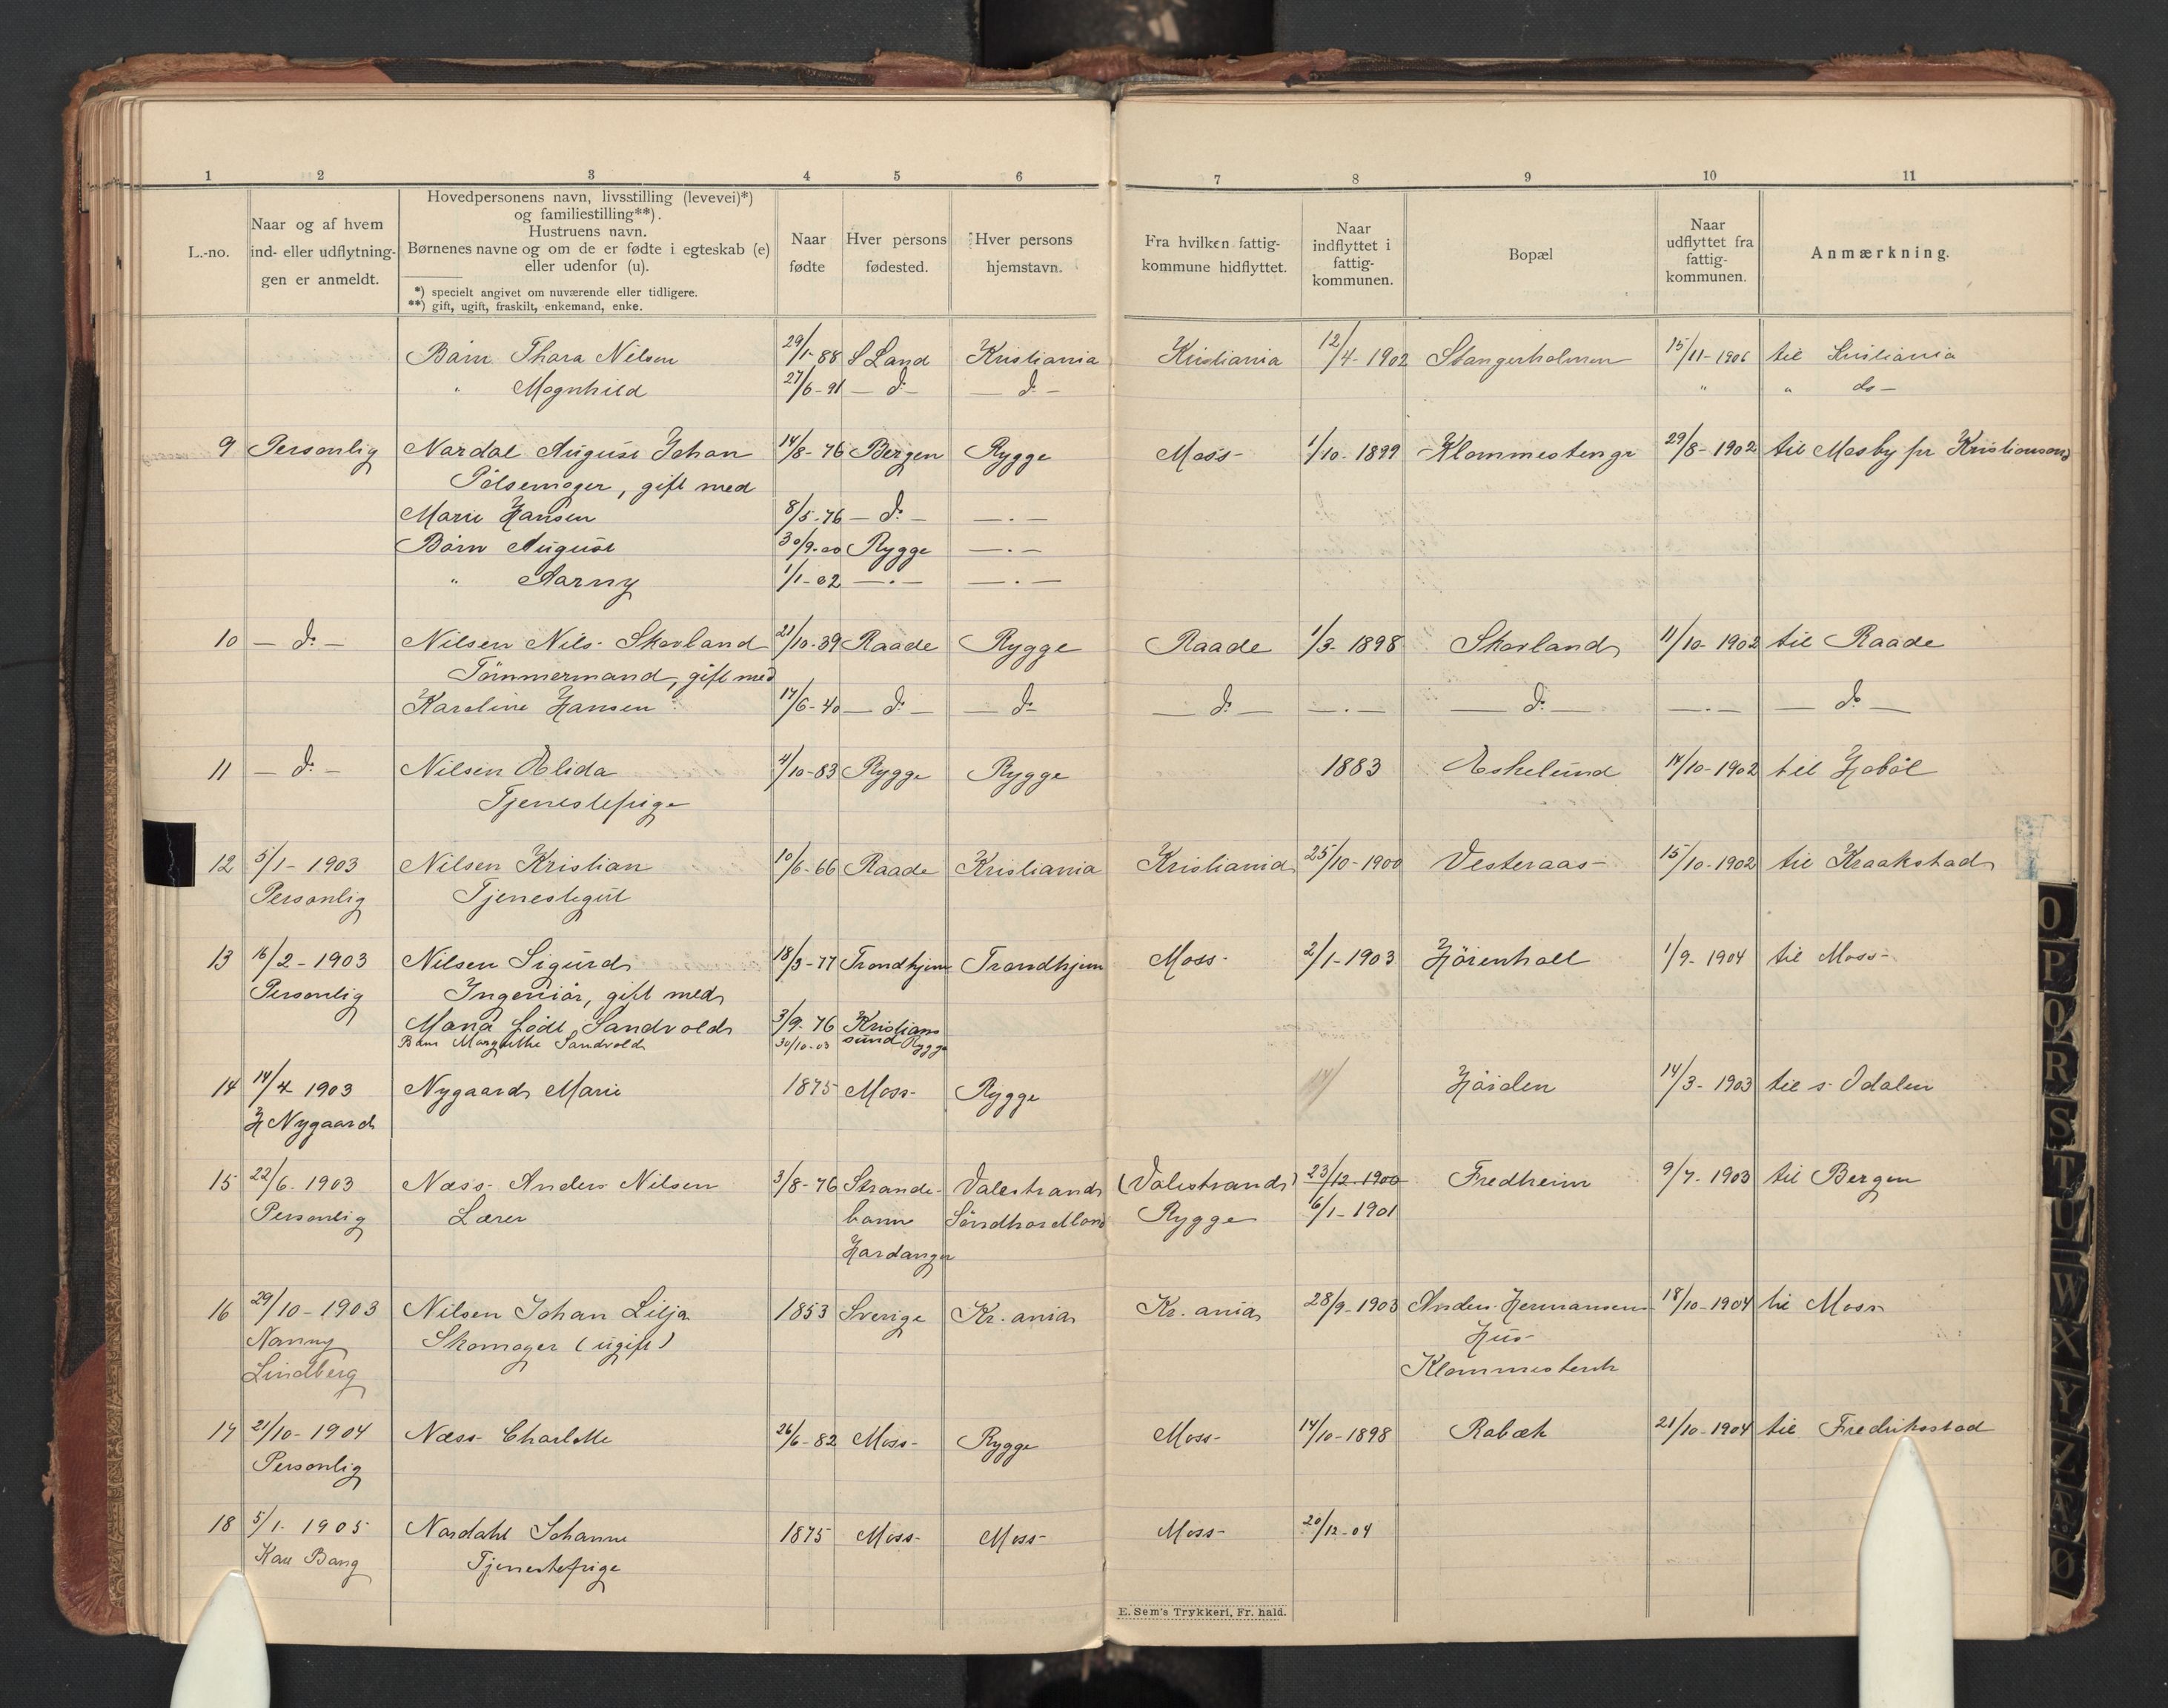 1 2 3 4 5 6 7 8 9 10 11
L.-no.
Naar og af hvem
ind- eller udflytnin-
gen er anmeldt.
Hovedpersonens navn, livsstilling (levevei)*)
og familiestilling**).
Hustruens navn.
Børnenes navne og om de er fødte i egteskab (e)
eller udenfor (u).
*) specielt angivet om nuværende eller tidligere.
**) gift, ugift, fraskilt, enkemand, enke.
Naar
fødte
Hver persons
fødested.
Hver persons
hjemstavn.
Fra hvilken fattig-
kommune hidflyttet.
Naar
indflyttet i
fattig-
kommunen.
Bopæl
Naar
udflyttet fra
fattig-
kommunen.
Anmærkning.
Barn Thora Nilsen 29/1-88 S Land Kristiania Kristiania 12/4-1902 Stangerholmen 15/11-1906 til Kristiania
" Magnhild 27/6-91 — do — — do — " " do —
9 Personlig Nardal August Johan 14/8-76 Bergen Rygge Moss 1/10-1899 Klommestengr 29/8-1902 til Mosby pr Kristiansand
Pølsemager, gift med
Marie Hansen 8/5-76 — do — — . —
Barn August 30/9-00 Rygge — . —
" Aarny 1/1-02 — . — — . —
10 — do — Nilsen Nils Skovland 21/10-39 Raade Rygge Raade 1/3-1898 Skovland 11/10-1902 til Raade
Tømmermand, gift med
Karoline Hansen 17/6-40 — do — — do — — do — — . — — do — — . — — do —
11 — do — Nilsen Alida 4/10-83 Rygge Rygge 1883 Askelund 14/10-1902 til Hobøl
Tjenestepige
12 5/1-1903 Nilsen Kristian 10/6-66 Raade Kristiania Kristiania 25/10-1900 Vesteraas 15/10-1902 til Kraakstad
Personlig Tjenestegut
13 16/2-1903 Nilsen Sigurd 18/3-77 Trondhjem Trondhjem Moss 2/1-1903 Hörenholl 1/9-1904 til Moss
Personlig Ingeniør, gift med
Mana født Sandvold 3/9-76 Kristians
Barn Margrethe Sandvold 30/10-03 sund Rygge
14 14/4 1903 Nygaard Marie 1875 Moss Rygge 14/ Høiden 14/3-1903 til s. Odalen
H Nygaard
15 22/6-1903 Næss Anders Nilsen 3/8-76 Strande- Valestrand (Valestrand) 23/12-1900 Fredheim 9/7-1903 til Bergen
Personlig Lærer barm Söndhordland Rygge 6/1-1901
Hardanger
16 29/10-1903 Nilsen Johan Lilja 1853 Sverige Kr. ania Kr. ania 28/9-1903 Anders Hermansens 18/10-1904 til Moss
Nanny Skomager (ugift) Hus
Lindberg Klommestenk
17 21/10-1904 Næss Charlotte 26/6-82 Moss Rygge Moss 14/10-1898 Rabæk 21/10-1904 til Fredrikstad
Personlig
18 5/1-1905 Nardahl Johanne 1875 Moss Moss Moss 20/12-04
Kari Bang Tjenestepige
E. Sem's Trykkeri, Fr. hald.
O
P
Q
R
S
T
U
W
X
Y
Z
Æ
Ø